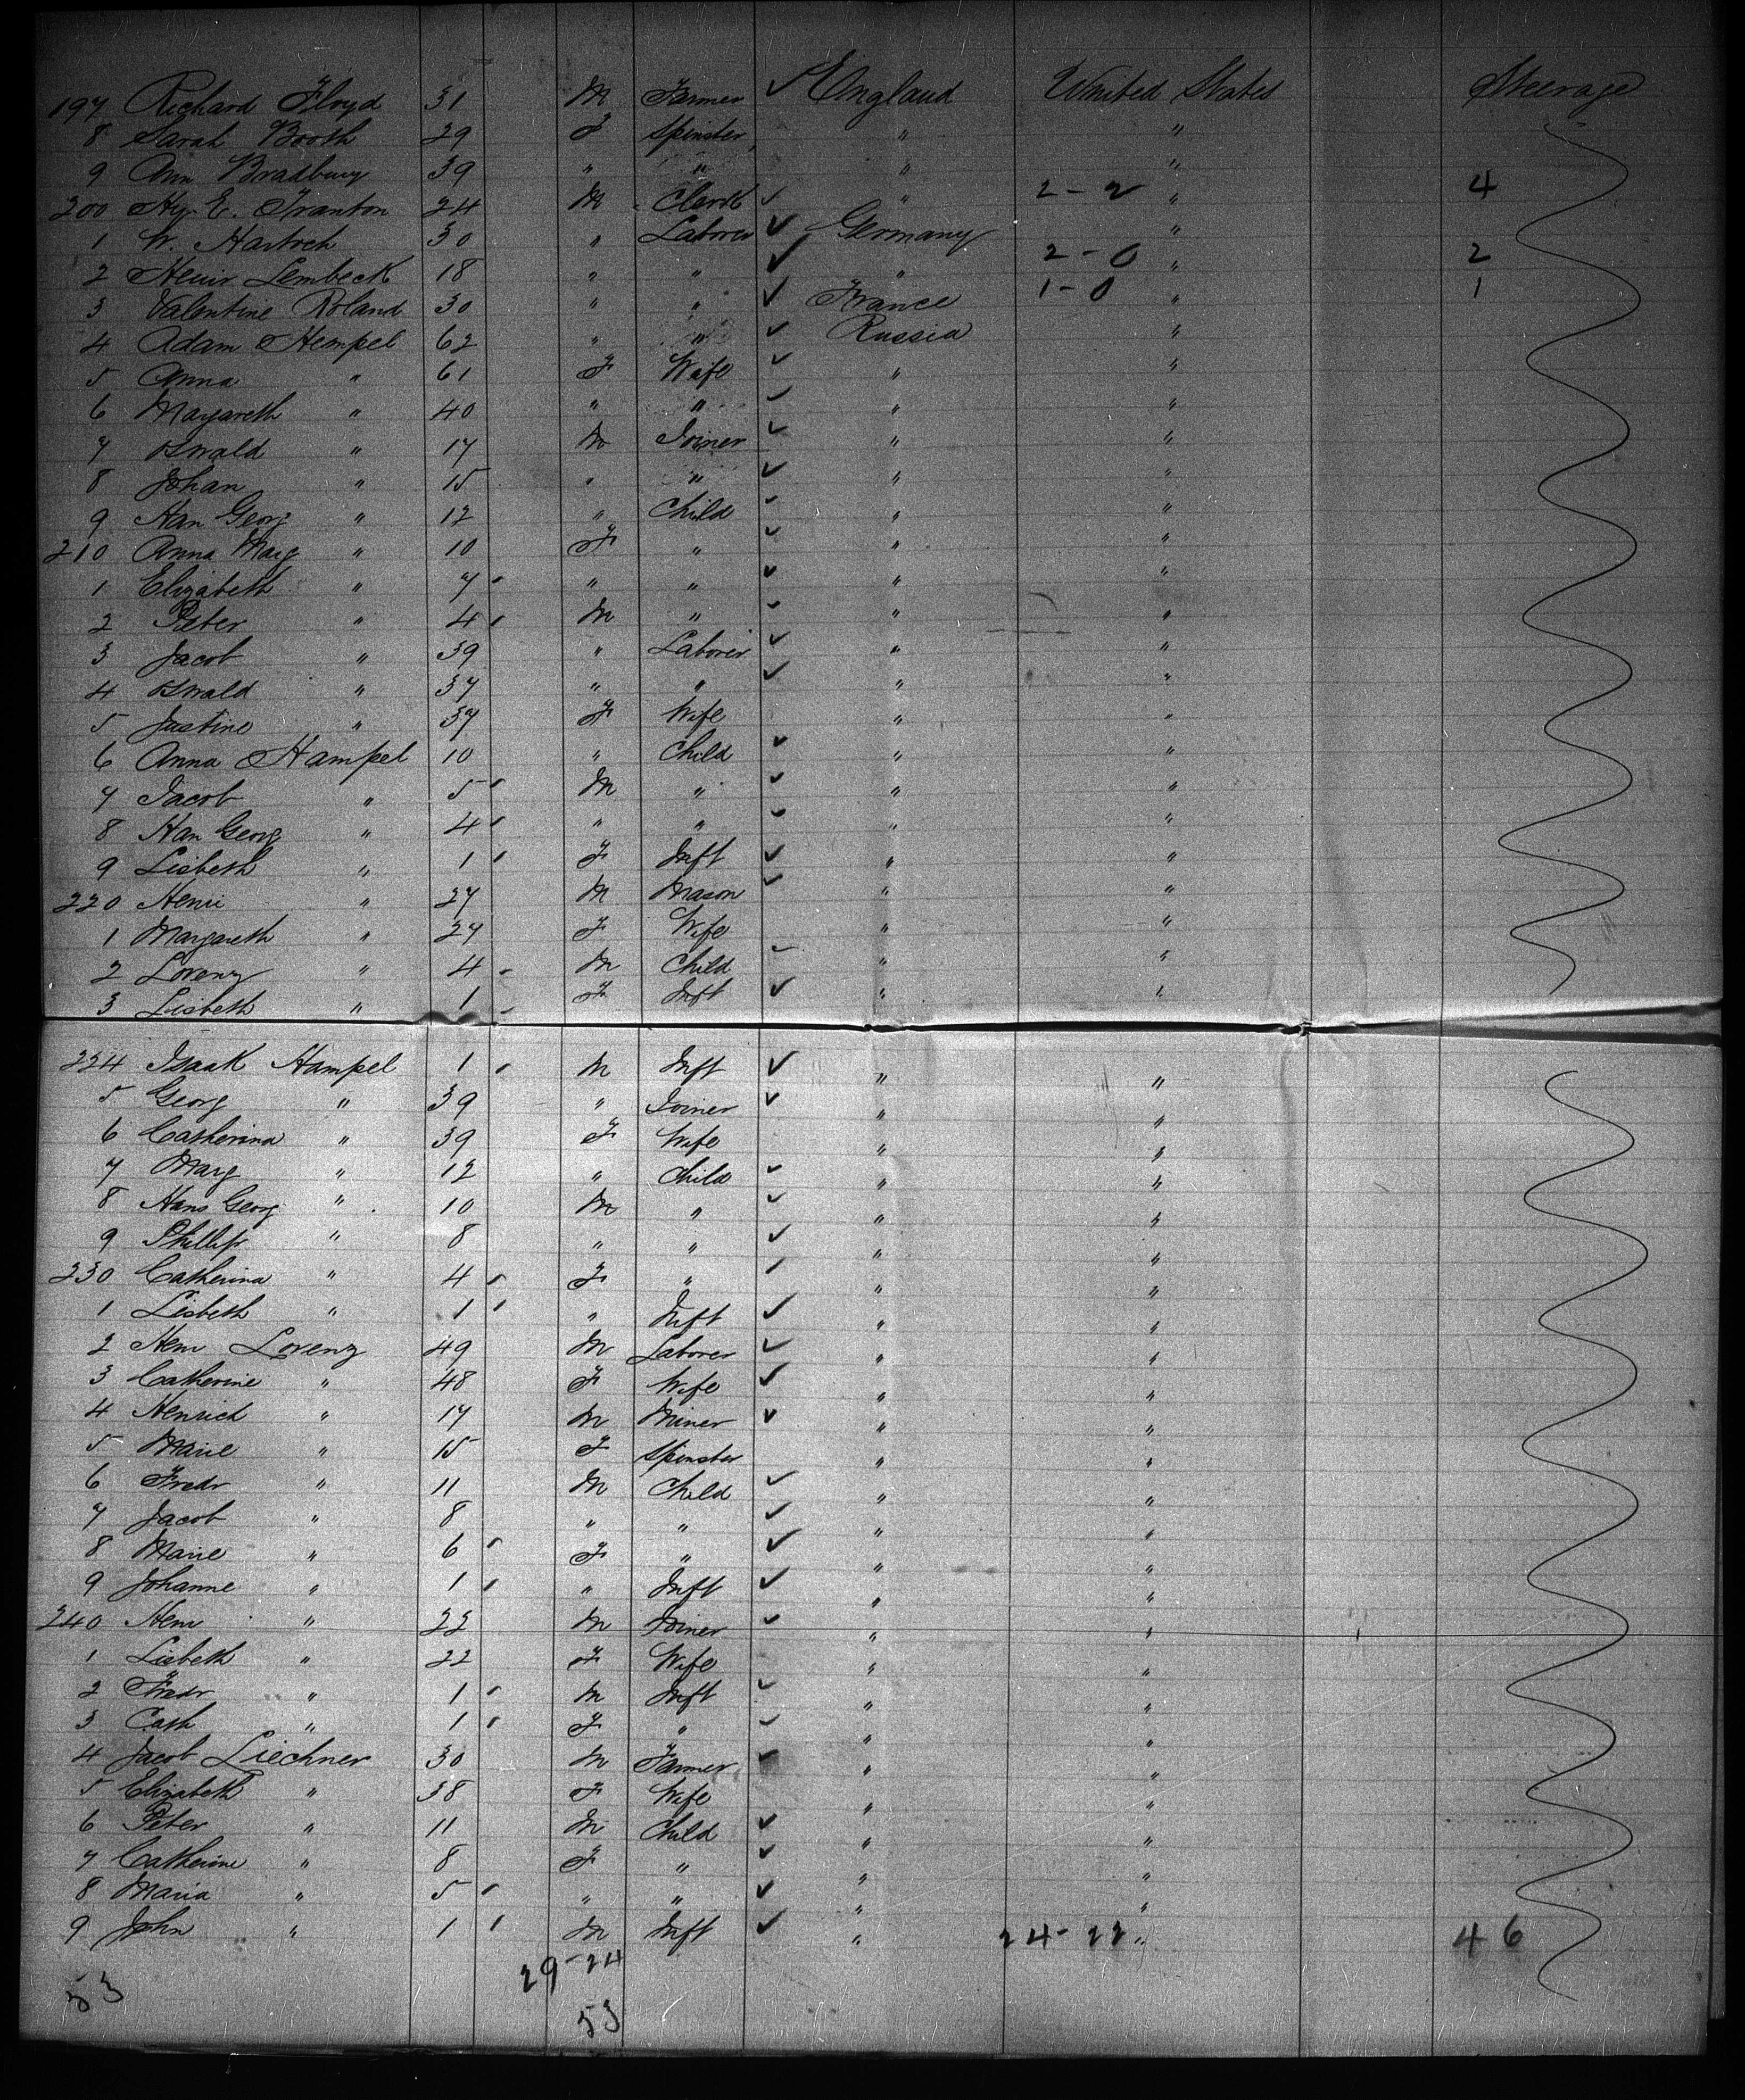 197 Richard Floyd 31 M Farmer ✓ England United States Steerage
8 Sarah Booth 29 F Spinster " "
9 Ann Bradbury 39 " " " "
200 Hy. E. Tranton 24 M Clerk ✓ " 2-2 " 4
1 W. 30 " Laborer ✓ Germany "
2 Heinr Lembeck 18 " " ✓ " 2-0 " 2
3 Valentine Roland 30 " " ✓ France 1-0 " 1
4 Adam Hempel 62 " " ✓ Russia "
5 Anna " 61 F Wife ✓ " "
6 Margareth " 40 " " ✓ " "
7 Oswald " 17 M Joiner ✓ " "
8 Johan " 15 " " ✓ " "
9 Han Georg " 12 " Child ✓ " "
210 Anna Marg " 10 F " ✓ " "
1 Elizabeth " 7 " " ✓ " "
2 Peter " 4 M " ✓ " "
3 Jacob " 39 " Laborer ✓ " "
4 Oswald " 37 " " ✓ " "
5 Justine " 37 F Wife " "
6 Anna Hampel 10 " Child ✓ " "
7 Jacob " 5 M " ✓ " "
8 Han Georg " 4 " " ✓ " "
9 Lisbeth " 1 F Inft ✓ " "
220 Henri " 27 M Mason ✓ " "
1 Margareth " 27 F Wife " "
2 Lorenz " 4 M Child ✓ " "
3 Lisbeth " 1 F Inft ✓ " "
224 Isaak Hampel 1 M Inft ✓ " "
5 Georg " 39 " Joiner ✓ " "
6 Catherina " 39 F Wife " "
7 Marg " 12 " Child ✓ " "
8 Hans Georg " 10 M " ✓ " "
9 Phillip " 8 " " ✓ " "
230 Catherina " 4 F " ✓ " "
1 Lisbeth " 1 " Inft ✓ " "
2 Henr Lorenz 49 M Laborer ✓ " "
3 Catherine " 48 F Wife ✓ " "
4 Henrich " 17 M Miner ✓ " "
5 Marie " 15 F Spinster " "
6 Fredr " 11 M Child ✓ " "
7 Jacob " 8 " " ✓ " "
8 Marie " 6 F " ✓ " "
9 Johanne " 1 " Inft ✓ " "
240 Henr " 22 M Joiner ✓ " "
1 Lisbeth " 22 F Wife " "
2 Fredr " 1 M Inft ✓ " "
3 Cath " 1 F " ✓ " "
4 Jacob Liechner 30 M Farmer ✓ " "
5 Elizabeth " 38 F Wife " "
6 Peter " 11 M Child ✓ " "
7 Catherine " 8 F " ✓ " "
8 Maria " 5 " " ✓ " "
9 John " 1 M Inft ✓ " 24-22 " 46
29-24
53 53